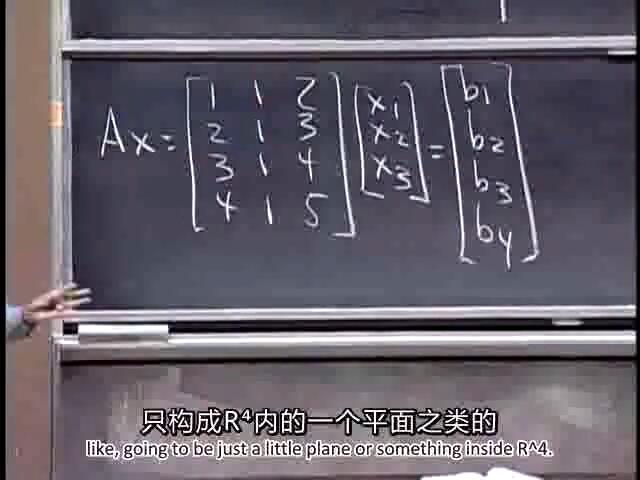 Ax = [1 1 2; 2 1 3; 3 1 4; 4 1 5] [x1; x2; x3] = [b1; b2; b3; b4]
只构成R⁴内的一个平面之类的
like, going to be just a little plane or something inside R^4.